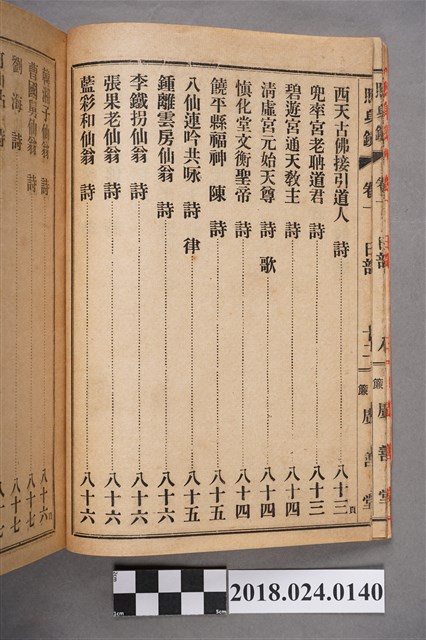 西天古佛接引道人 詩 八十三頁
兜率宮老聃道君 詩 八十三
碧遊宮通天教主 詩 八十四
清虛宮元始天尊 詩 歌 八十四
慎化堂文衡聖帝 詩 八十四
饒平縣福神 陳 詩 八十五
八仙連吟共咏 詩 律 八十五
鍾離雲房仙翁 詩 八十六
李鐵拐仙翁 詩 八十六
張果老仙翁 詩 八十六
藍彩和仙翁 詩 八十六
韓湘子仙翁 詩 八十六頁
曹國房仙翁 詩 八十七
劉海 詩 八十七
2018.024.0140